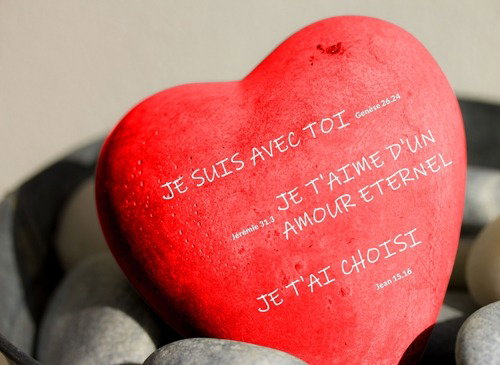 JE SUIS AVEC TOI Genèse 26,24
JE T'AIME D'UN
Jérémie 31.3 AMOUR ETERNEL
JE T'AI CHOISI
Jean 15,16